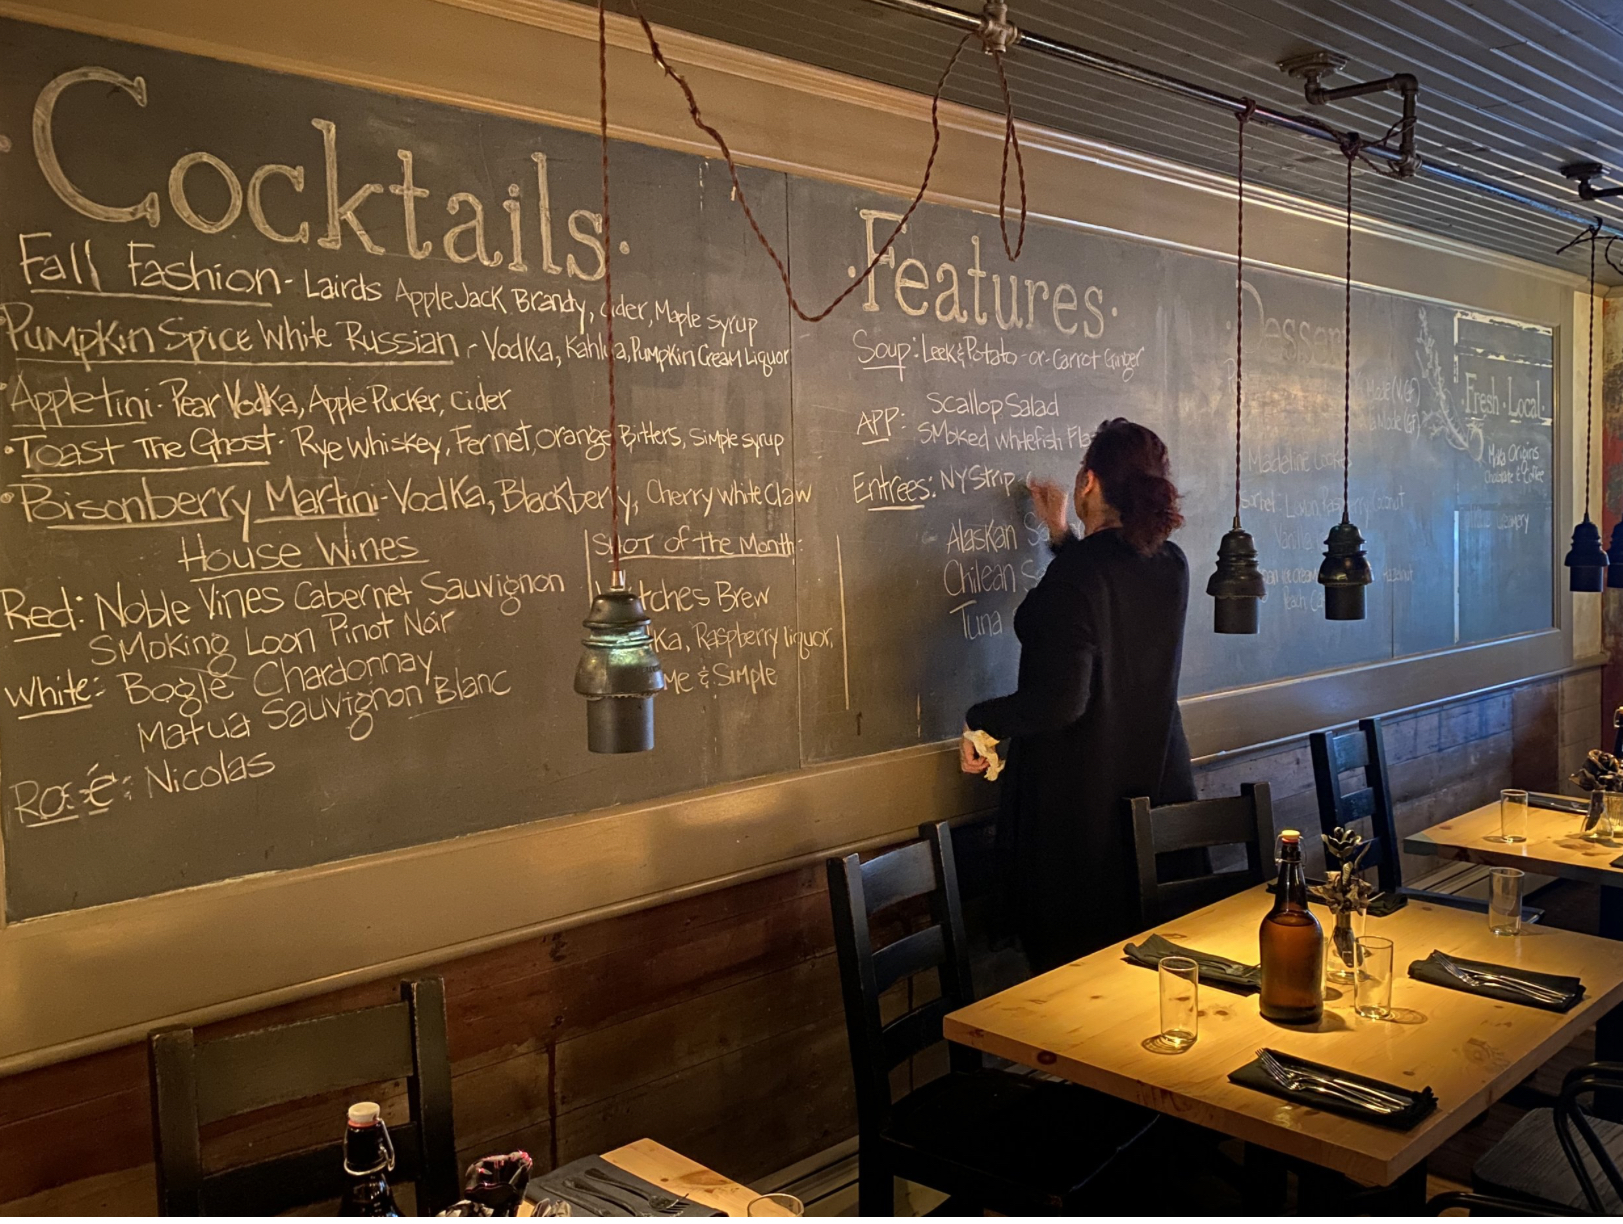 Cocktails.
Fall Fashion - Lairds AppleJack Brandy, cider, Maple syrup
Pumpkin Spice White Russian - Vodka, Kahlua, Pumpkin Cream Liquor
Appletini - Pear Vodka, Apple Pucker, cider
Toast The Ghost - Rye whiskey, Fernet, orange Bitters, simple syrup
Poisonberry Martini - Vodka, Blackberry, Cherry white claw
House Wines
Red: Noble Vines Cabernet Sauvignon
Smoking Loon Pinot Noir
White: Bogle Chardonnay
Matua Sauvignon Blanc
Rosé: Nicolas
Shot of the Month:
tches Brew
ka, Raspberry liquor,
me & Simple
.Features.
Soup: Leek & Potato -or- Carrot Ginger
APP: Scallop Salad
Smoked whitefish
Entrees: NY Strip
Alaskan
Chilean
Tuna
Dessert
Made (GF)
Madeline
Vanilla
Fresh. Local.
Origins
Chocolate & Coffee